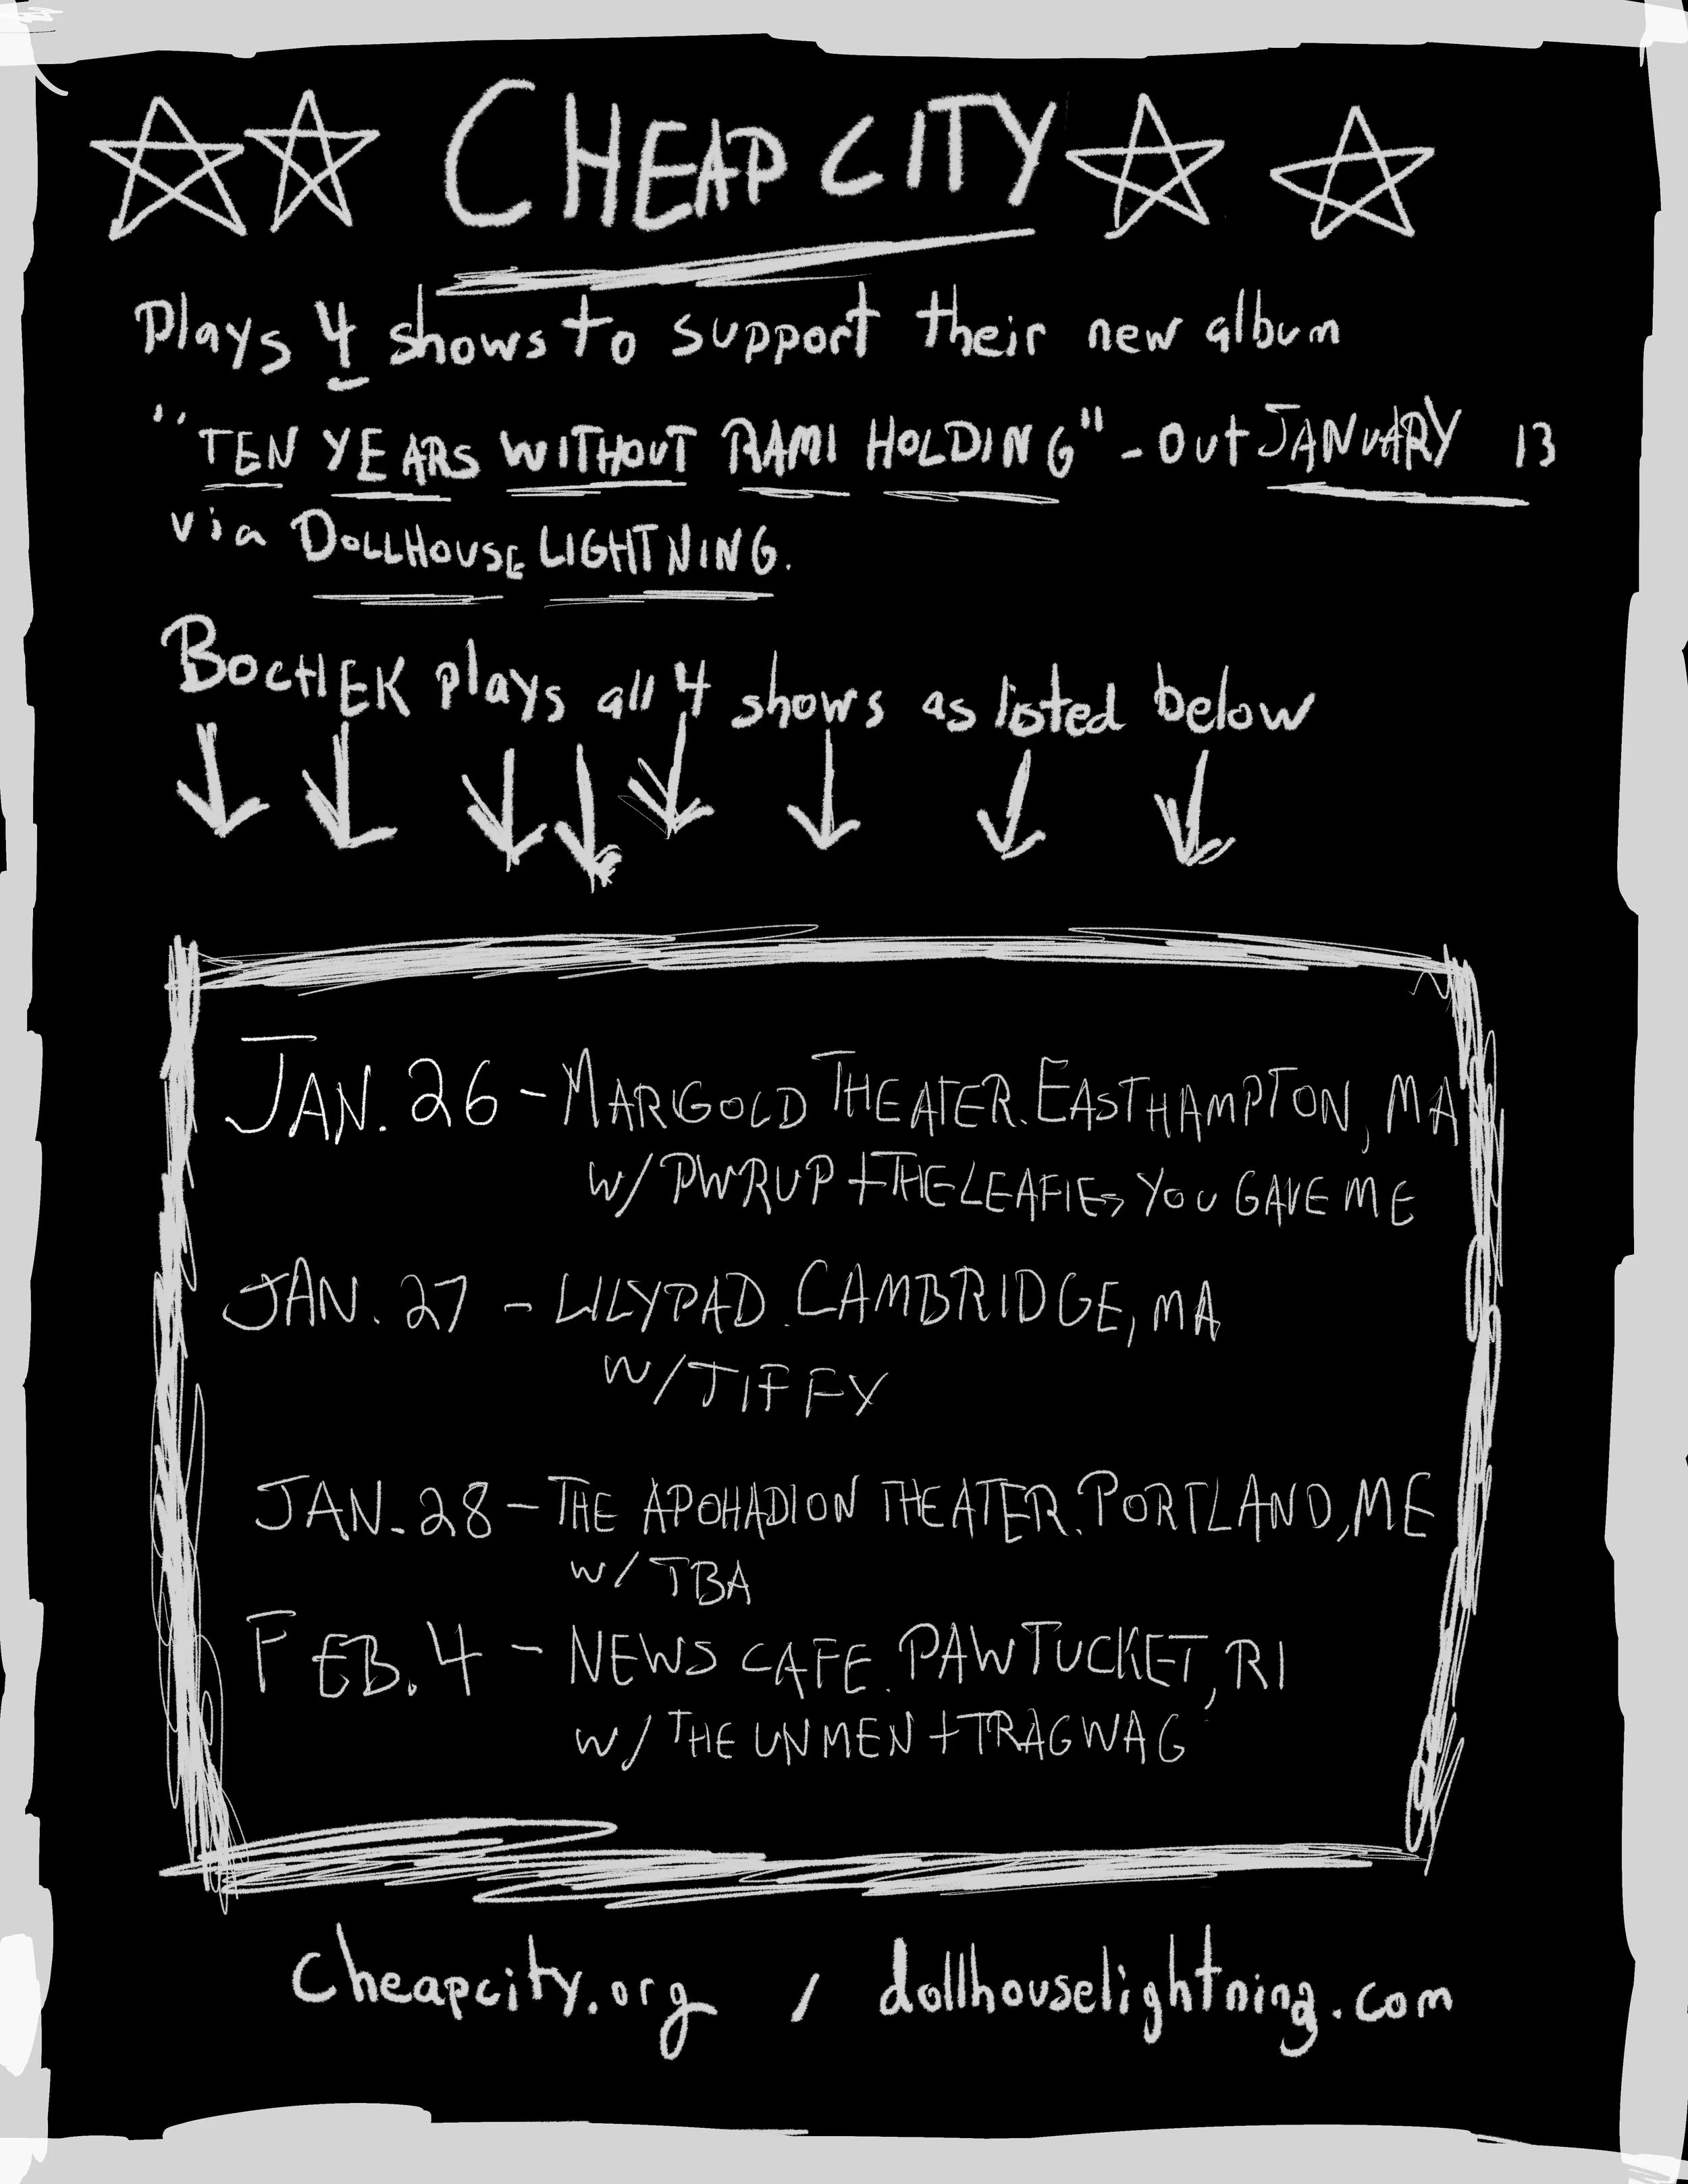 CHEAP CITY
Plays 4 shows to support their new album
"TEN YEARS WITHOUT RAMI HOLDING" - out JANUARY 13
via DOLLHOUSE LIGHTNING.
BOCHEK plays all 4 shows as listed below
JAN. 26 - MARIGOLD THEATER. EASTHAMPTON, MA
W/ PWRUP + THE LEAFIES YOU GAVE ME
JAN. 27 - LILYPAD. CAMBRIDGE, MA
W/ TIFFY
JAN. 28 - THE APOHADION THEATER. PORTLAND, ME
W/ TBA
FEB. 4 - NEWS CAFE. PAWTUCKET, RI
W/ THE UNMEN + TRAGWAG
cheapcity.org / dollhouselightning.com